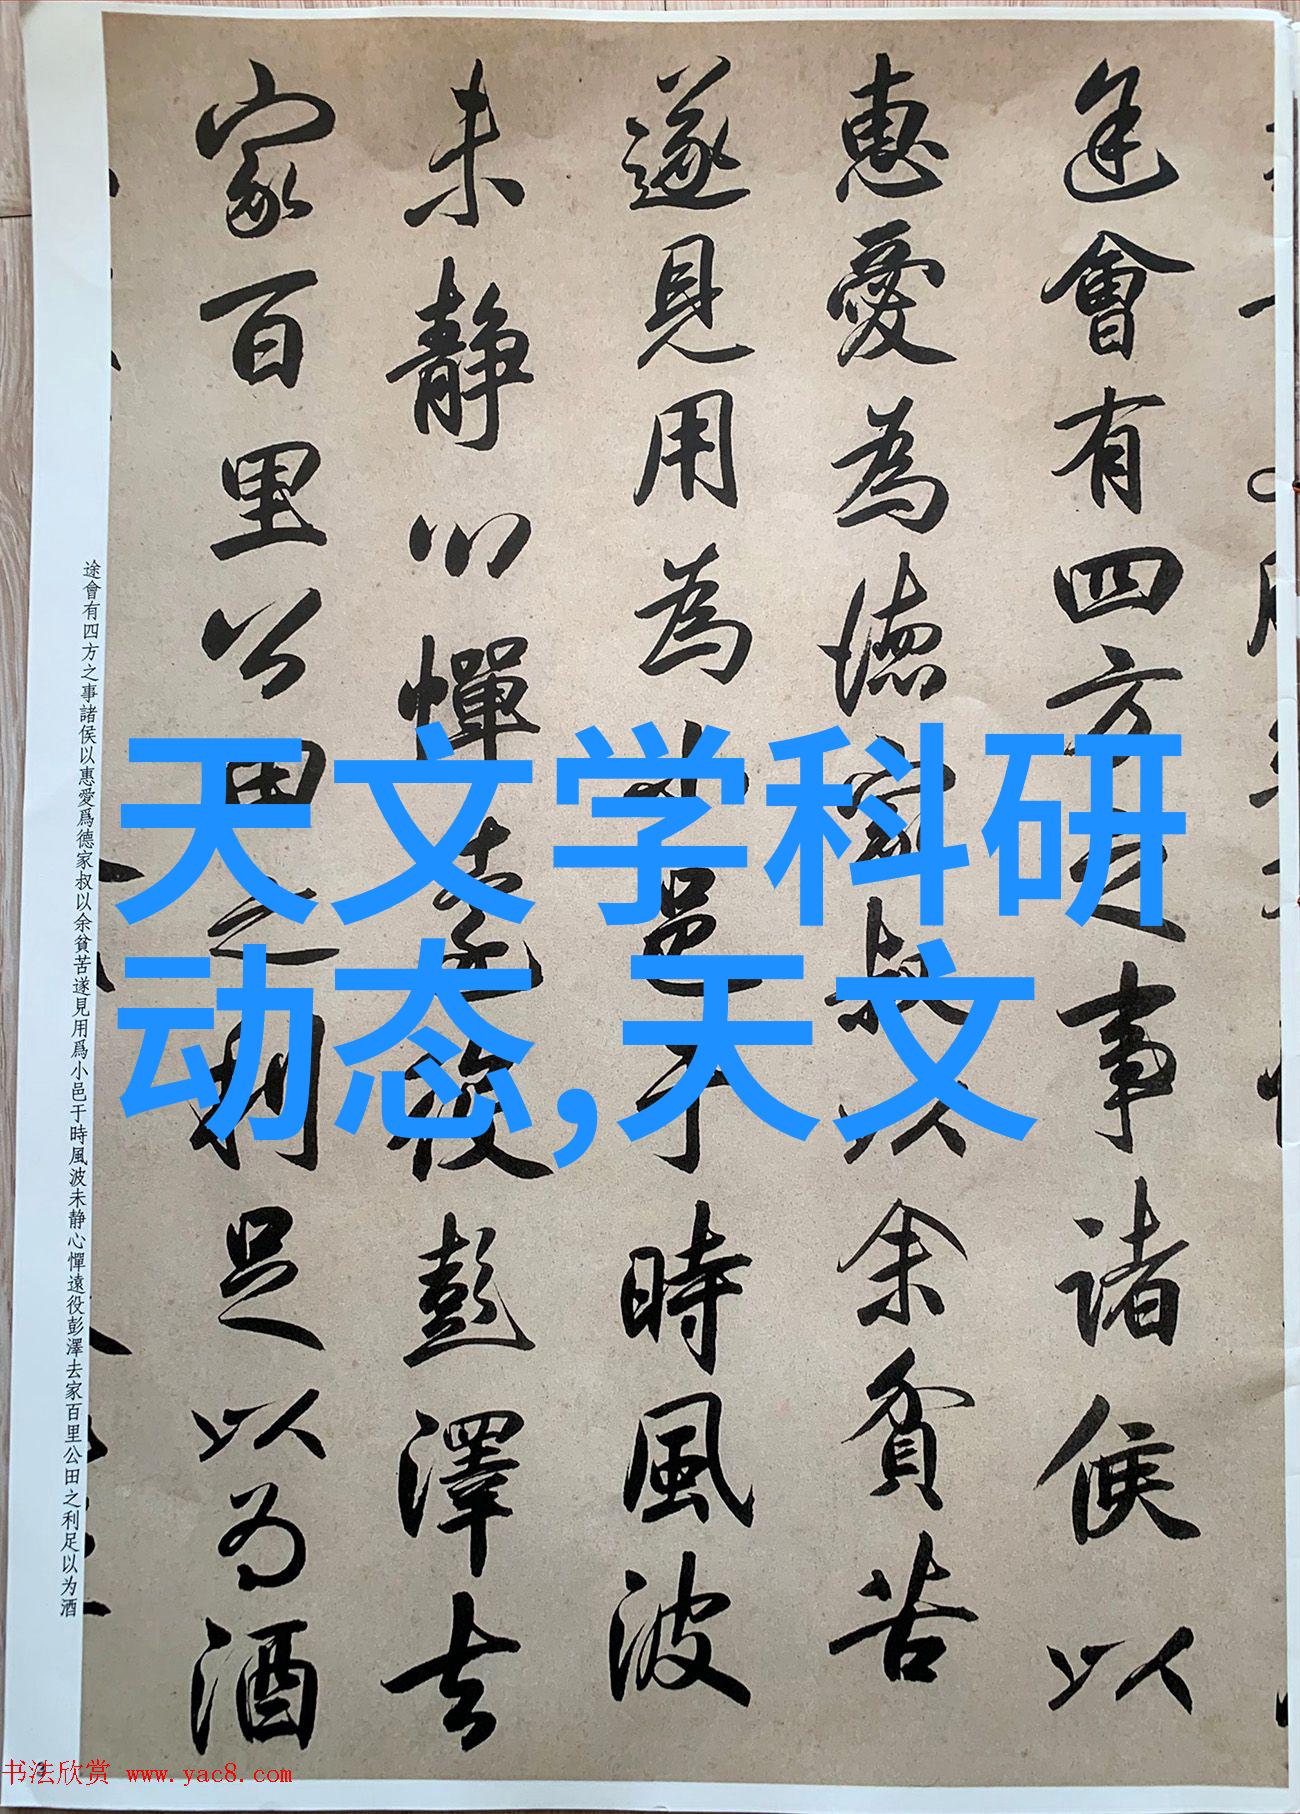 途會有四方之事諸侯以
惠愛為德家叔以余貧苦
遂見用為小邑于時風波
未靜心憚遠役彭澤去
家百里公田之利足以為酒
途會有四方之事諸侯以惠愛爲德家叔以余貧苦遂見用爲小邑于時風波未静心憚遠役彭澤去家百里公田之利足以为酒
天文学科研
动态,天文
书法欣赏 www.yac8.com